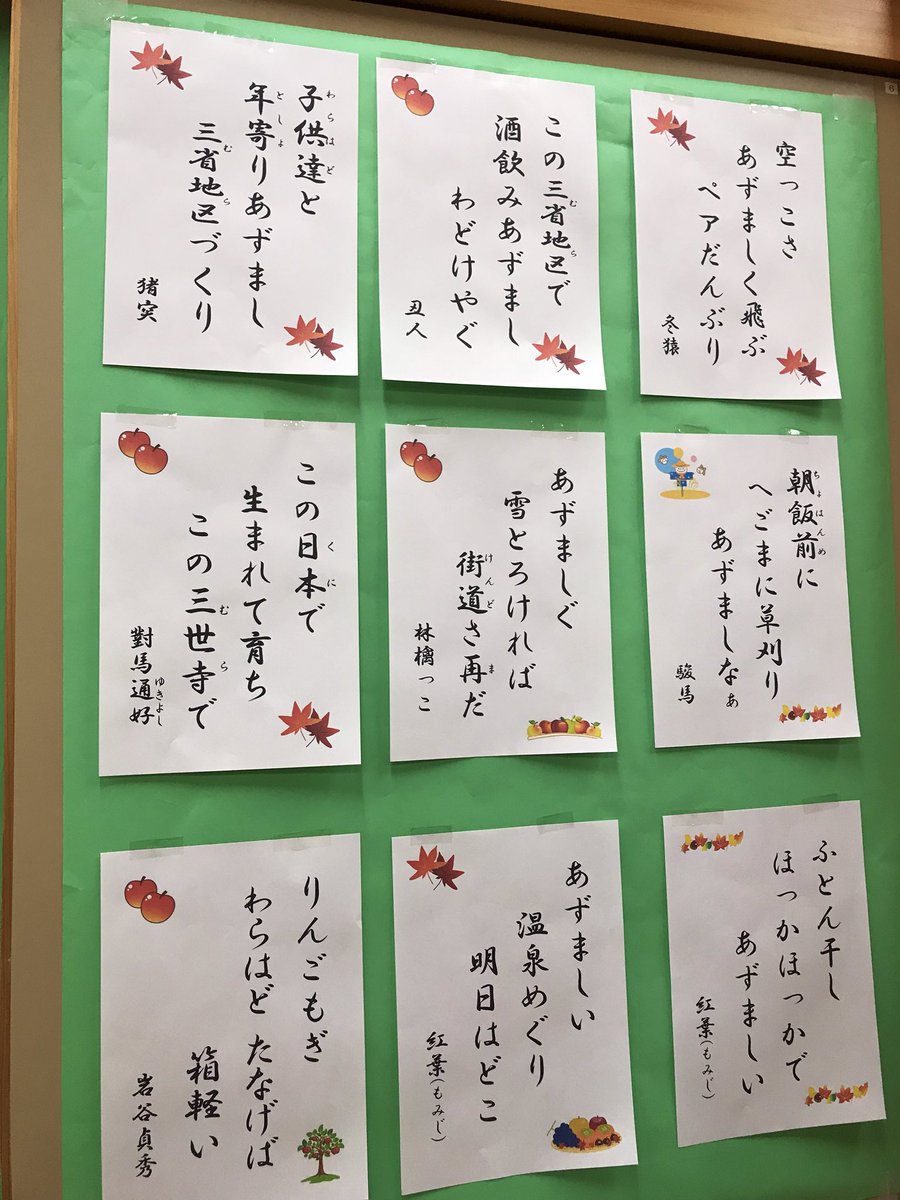 空っこさ
あずましく飛ぶ
ペアだんぶり
冬猿
この三省地区で
むら
酒飲みあずまし
わどけやぐ
丑人
子供達と
わらはど
年寄りあずまし
としょ
三省地区づくり
むら
猪突
朝飯前に
ちょはんめ
へごまに草刈り
あずましなぁ
駿馬
あずましぐ
雪とろければ
街道さ再だ
けんど ま
林檎っこ
この日本で
くに
生まれて育ち
この三世寺で
むら
對馬通好
ゆきよし
ふとん干し
ほっかほっかで
あずましい
紅葉(もみじ)
あずましい
温泉めぐり
明日はどこ
紅葉(もみじ)
りんごもぎ
わらはど たなげば
箱軽い
岩谷貞秀
6